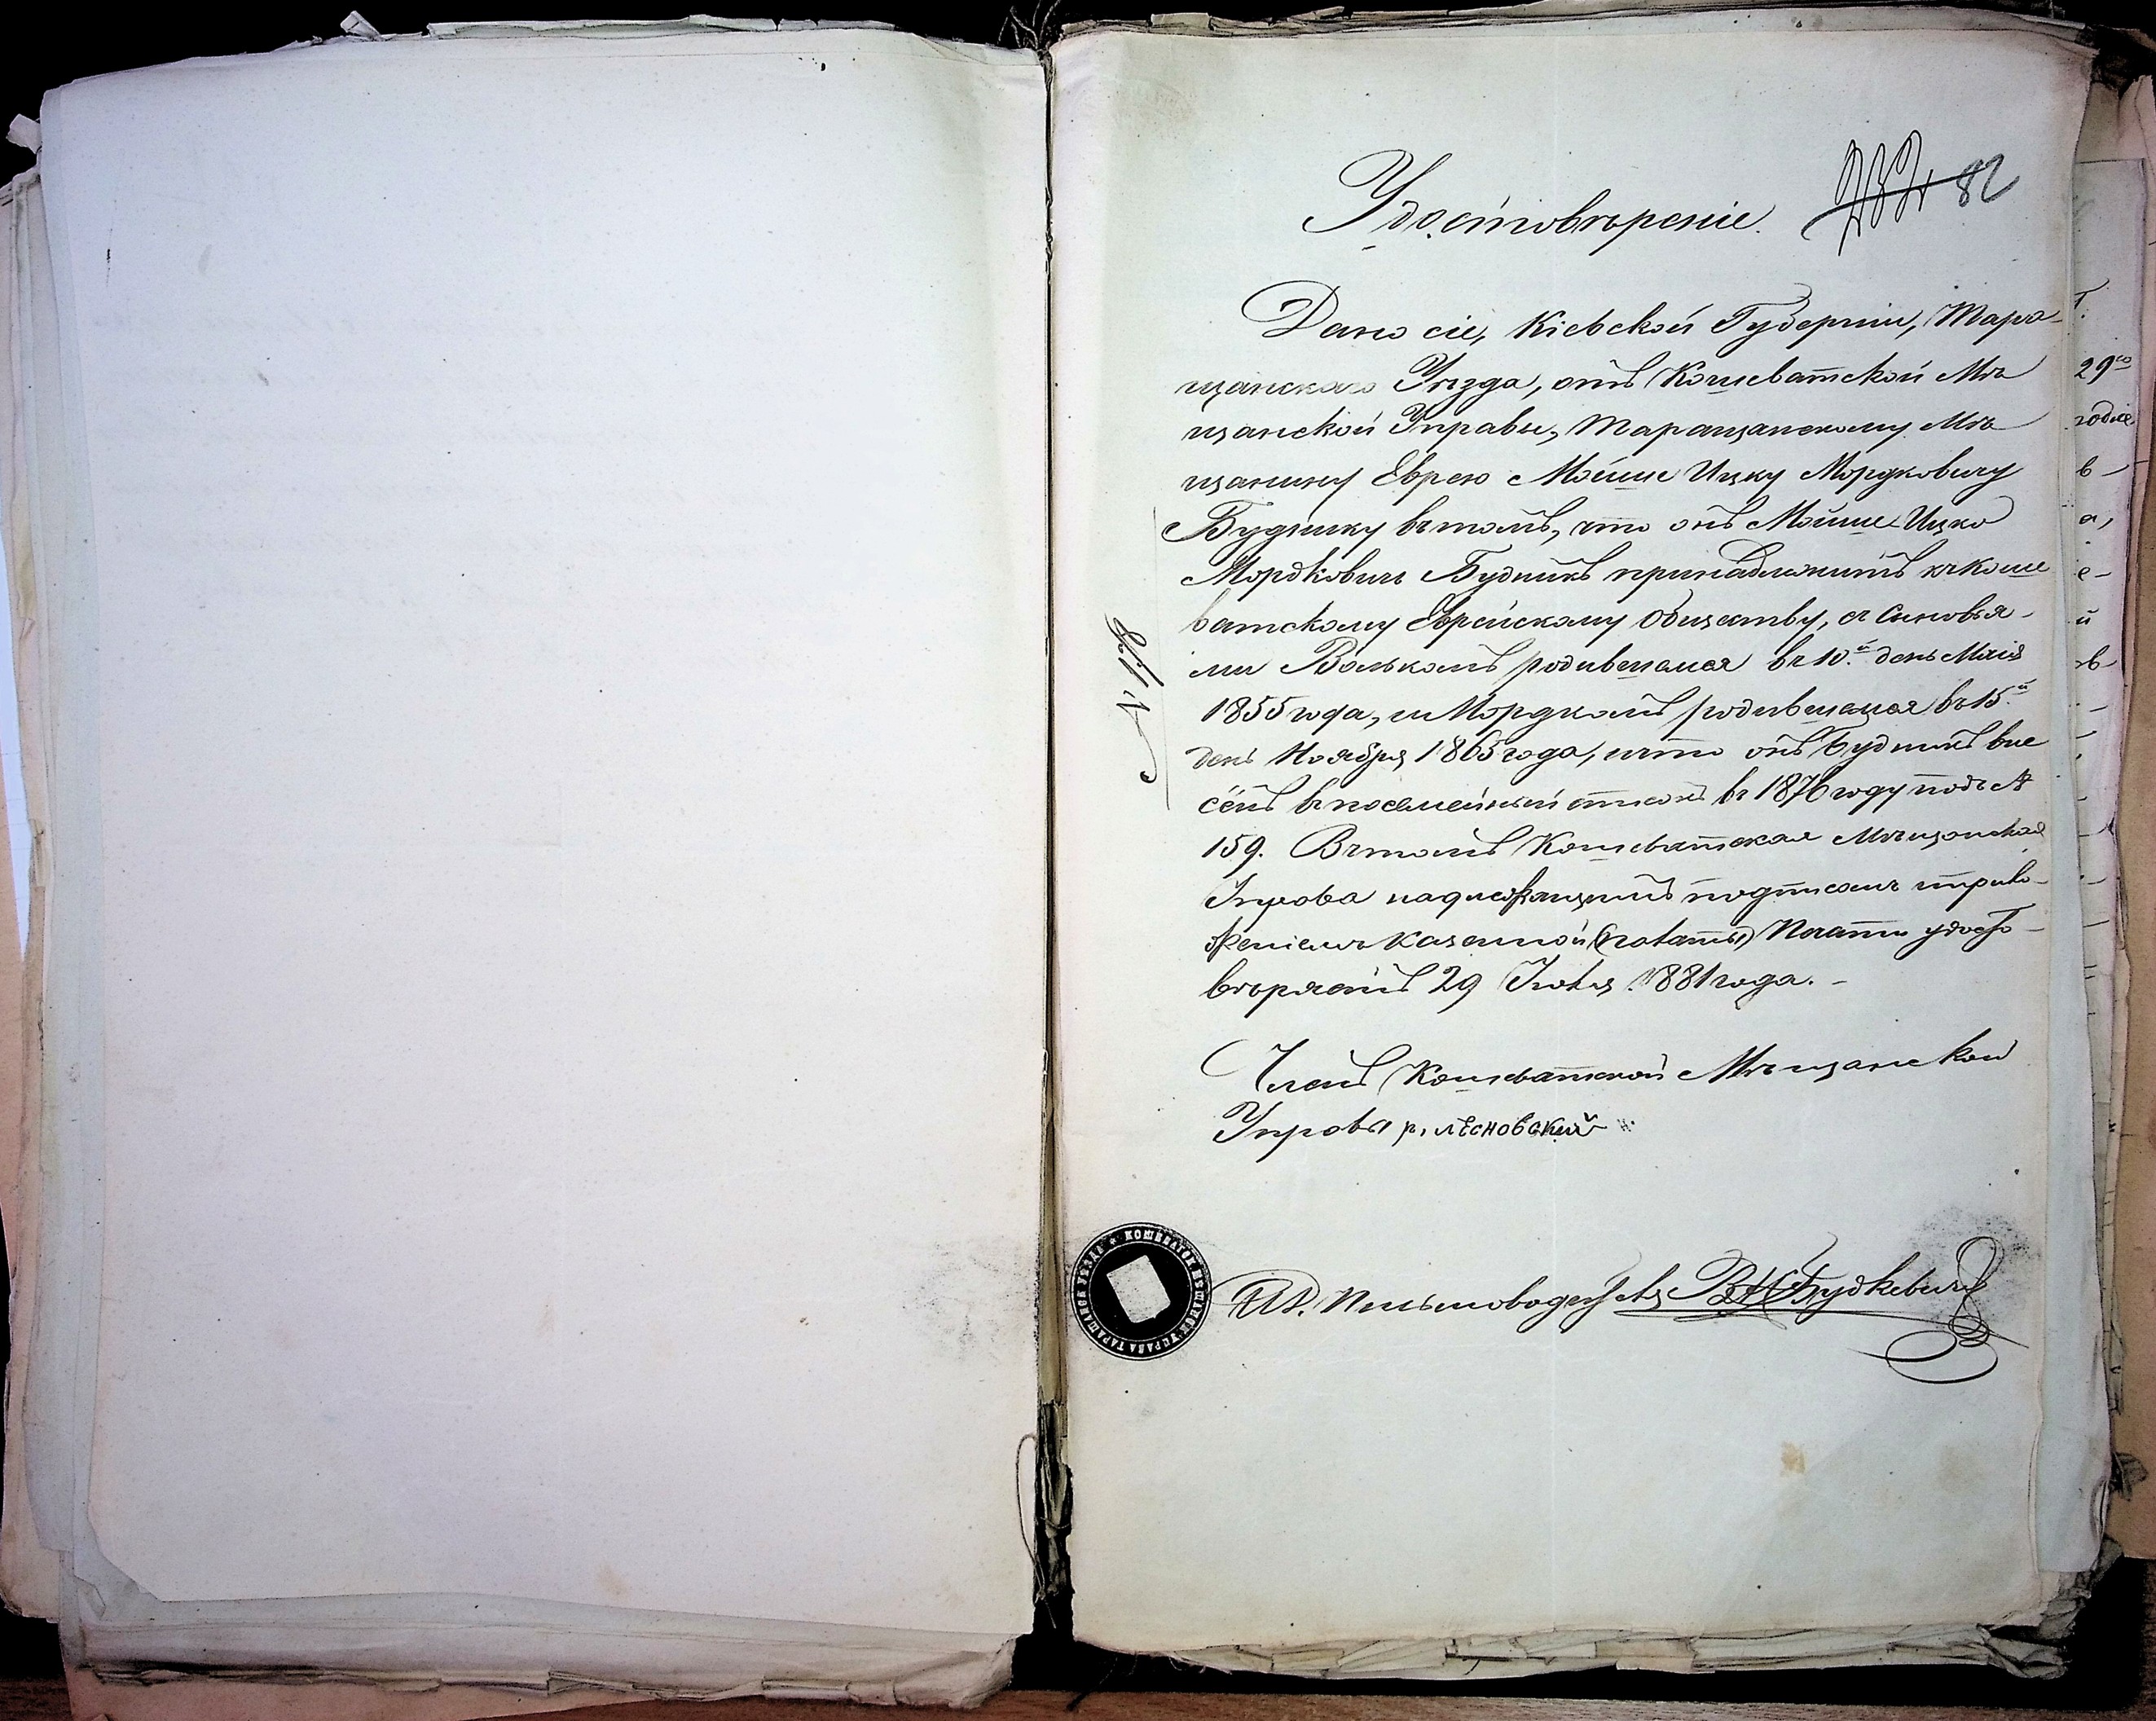 82
Удостовѣреніе.
Дано сіе, Кіевской Губерніи, Тара-
щанскаго Уѣзда, отъ Кошеватской Мѣ
щанской Управы, Таращанскому Мѣ
щанину Еврею Мойше Ицку Мордковичу
Буднику въ томъ, что онъ Мойше-Ицко
Мордковичъ Будникъ принадлежитъ къ Коше
ватскому Еврейскому Обществу, съ Сыновья-
ми Волькомъ родившемся въ 10.й день Маія
1855 года, и Мордкомъ родившемся въ 15й
день Ноября 1865 года, и что онъ Будникъ вне
сенъ въ посемейный списокъ въ 1876 году подъ №
159. Въ томъ Кошеватская Мѣщанская
Управа надлежащимъ подписомъ и прило-
женіемъ казенной Печати удосто-
вѣряетъ 29 1881 года. -
Членъ Кошеватской Мѣщанской
Управы р, лѣсновский
Письмоводитель Будкевичъ
№ 118
КОШЕВАТСК. МѢЩАНСК. УПРАВА ТАРАЩАНСК. УѢЗДА
29го